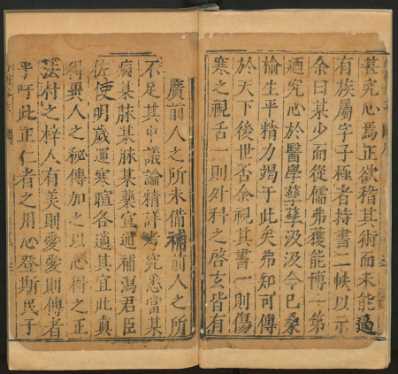 甚究心焉正欲稽其術而未能遇
有族屬字子極者持書二帙以示
余曰某少而從儒弗獲能博一第
迺究心於醫學孳孳汲汲今已桑
榆生平精力竭于此矣弗知可傳
於天下後世否余視其書一則傷
寒之視舌一則外科之啓玄皆有
廣前人之所未備補前人之所
不足其中議論精詳 究悉當某
癥某脉某脉某藥宣通補瀉君臣
佐使明歲運寒暄各適其宜此真
得異人之秘傳加之以心術之正
法村之梓人有美則愛愛則傳者
乎吁此正仁者之用心登斯民于